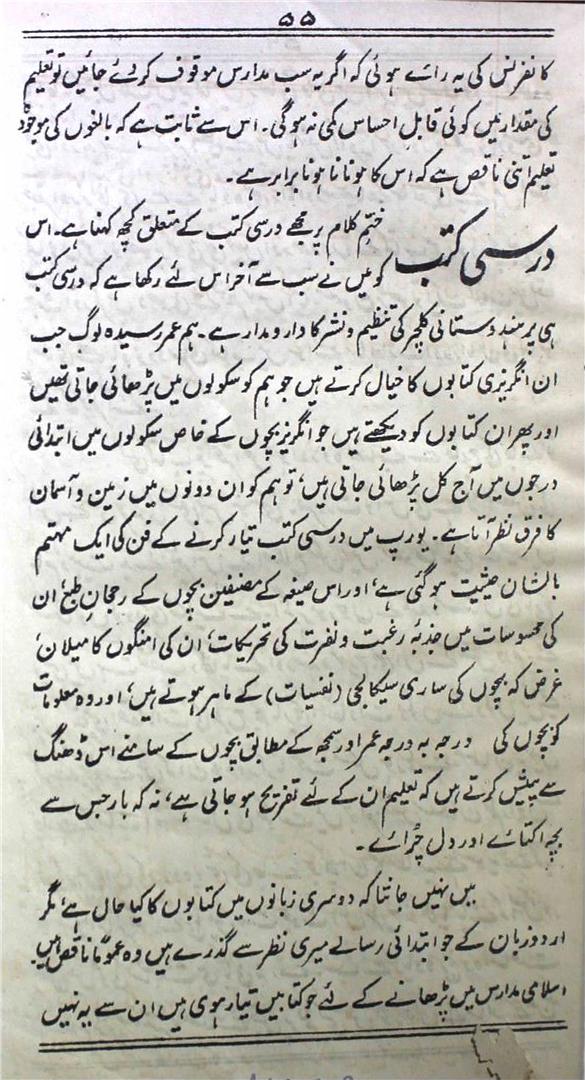 ۵۵
کانفرنس کی یہ رائے ہوئی کہ اگر یہ سب مدارس موقوف کر دیے جائیں تو تعلیم
کی مقدار میں کوئی قابل احساس کمی نہ ہوگی۔ اس سے ثابت ہے کہ بالغوں کی موجودہ
تعلیم اتنی ناقص ہے کہ اس کا ہونا نا ہونا برابر ہے۔
درسی کتب
ختم کلام پر مجھے درسی کتب کے متعلق کچھ کہنا ہے۔ اس
کو میں نے سب سے آخر اس لئے رکھا ہے کہ درسی کتب
ہی پر ہندوستانی کلچر کی تنظیم و نشر کا دارومدار ہے۔ ہم عمر رسیدہ لوگ جب
ان انگریزی کتابوں کا خیال کرتے ہیں جو ہم کو سکولوں میں پڑھائی جاتی تھیں
اور پھر ان کتابوں کو دیکھتے ہیں جو انگریز بچوں کے خاص سکولوں میں ابتدائی
درجوں میں آج کل پڑھائی جاتی ہیں، تو ہم کو ان دونوں میں زمین و آسمان
کا فرق نظر آتا ہے۔ یورپ میں درسی کتب تیار کرنے کے فن کی ایک مہتم
بالشان حیثیت ہو گئی ہے، اور اس صیغہ کے مصنفین بچوں کے رجحان طبع، ان
کی محسوسات میں جذبۂ رغبت و نفرت کی تحریکات، ان کی امنگوں کا میلان،
غرض کہ بچوں کی ساری سیکالجی (نفسیات) کے ماہر ہوتے ہیں، اور وہ معلومات
کو بچوں کی درجہ بہ درجہ عمر اور سمجھ کے مطابق بچوں کے سامنے اس ڈھنگ
سے پیش کرتے ہیں کہ تعلیم ان کے لئے تفریح ہو جاتی ہے، نہ کہ بار جس سے
بچہ اکتائے اور دل چرائے۔
میں نہیں جانتا کہ دوسری زبانوں میں کتابوں کا کیا حال ہے، مگر
اردو زبان کے جو ابتدائی رسالے میری نظر سے گذرے ہیں وہ عموماً ناقص ہیں۔
اسلامی مدارس میں پڑھانے کے لئے جو کتابیں تیار ہوی ہیں ان سے یہ نہیں